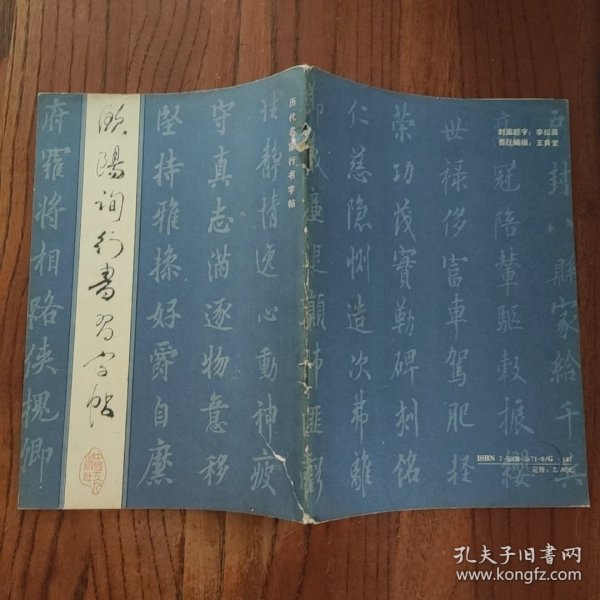 欧陽詢行書習字帖
历代名家行书字帖
户封八縣家給千兵
高冠陪輦驅轂振纓
世祿侈富車駕肥輕
策功茂實勒碑刻銘
仁慈隱惻造次弗離
節義廉退顛沛匪虧
性靜情逸心動神疲
守真志滿逐物意移
堅持雅操好爵自縻
府羅將相路俠槐卿
封面题字：
责任编辑：
ISBN
定价：
孔夫子旧书网
www.kongfz.com